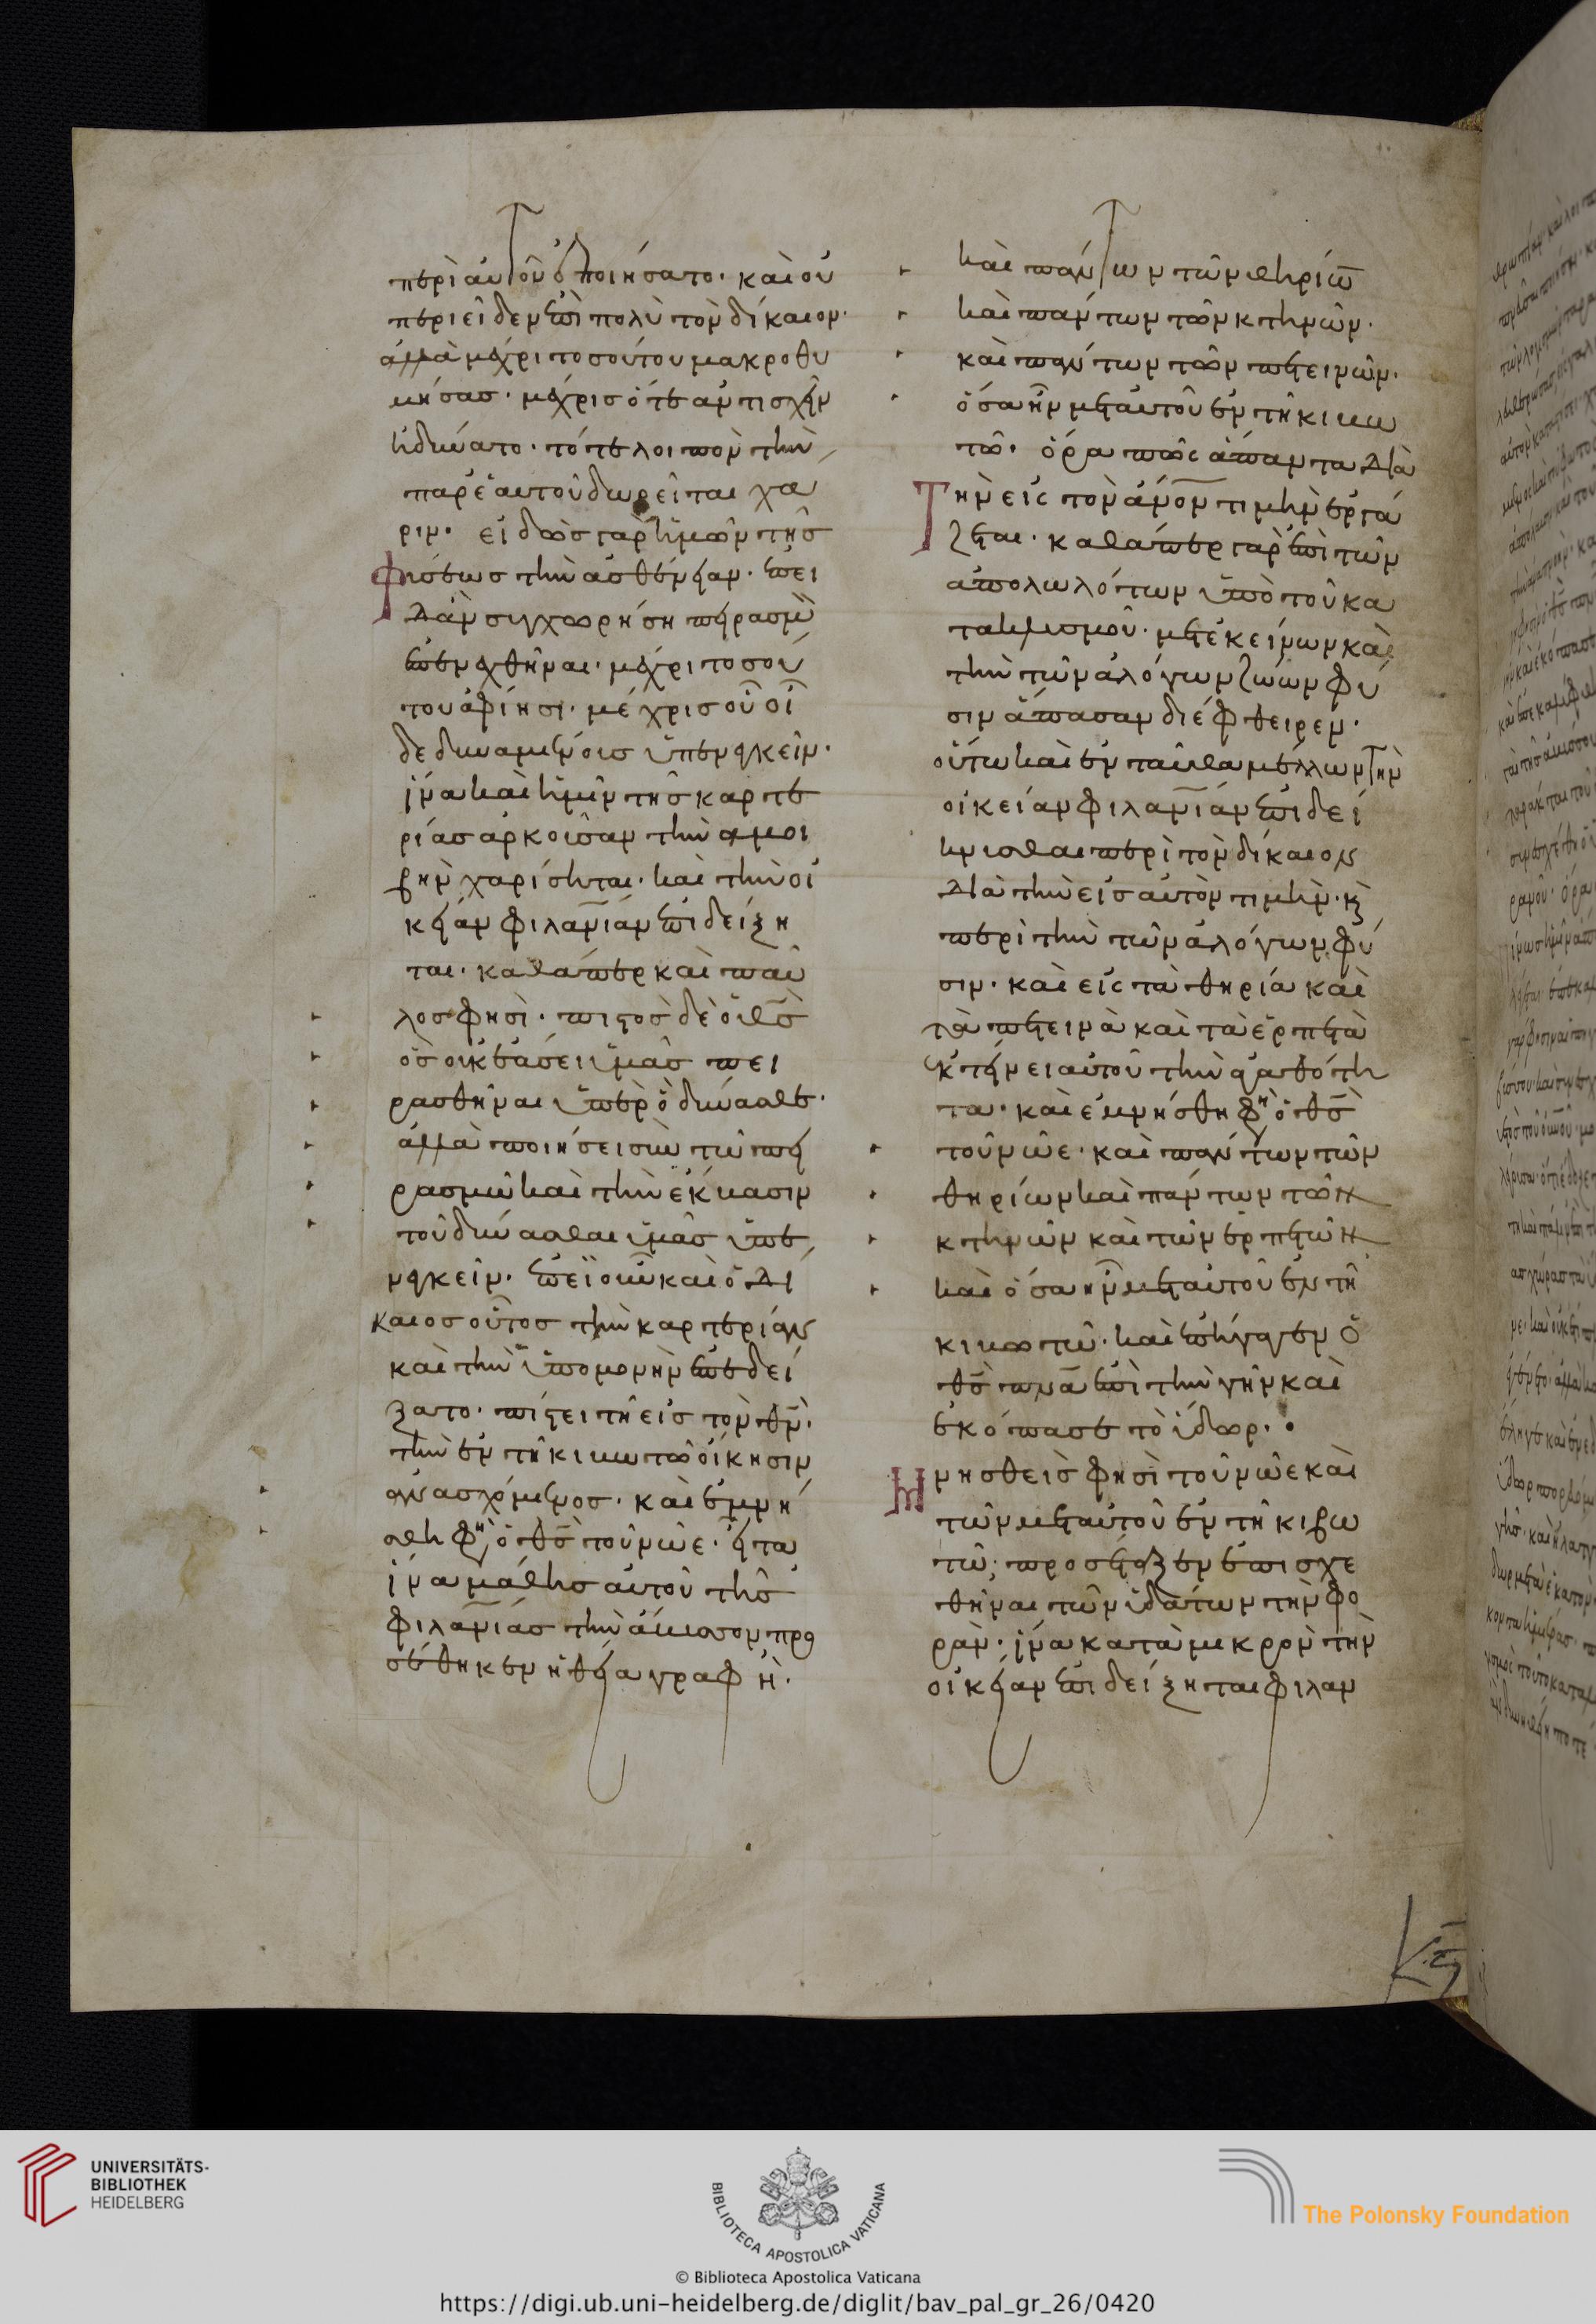 περὶ αὐτὸν ἐποιήσατο· καὶ οὐ
περιεῖδεν ἐπὶ πολὺ τὸν δίκαιον·
ἀλλὰ μέχρι τοσούτου μακροθυ
μήσας· μέχρις ὅτε ἀντισχεῖν
ἠδύνατο· τότε λοιπὸν τὴν
παρ' ἑαυτοῦ δωρεῖται χά
ριν· εἰδὼς γὰρ ἡμῶν τῆς
φύσεως τὴν ἀσθένειαν· ἐπει
δὰν συγχωρήση πειρασμὸν
ἐπενεχθῆναι· μέχρι τοσού
του ἀφίησι· μέχρις οὗ οἶ
δε δυναμένοις ὑπενεγκεῖν·
ἵνα καὶ ἡμῖν τῆς καρτε
ρίας ἀρκοῦσαν τὴν ἀμοι
βὴν χαρίσηται· καὶ τὴν οἰ
κείαν φιλανίαν ἐπιδείξη
ται· καθάπερ καὶ παῦ
λος φησί· πιστὸς δὲ ὁ θς
ὃς οὐκ ἐάσει ὑμᾶς πει
ρασθῆναι ὑπὲρ ὃ δύνασθε·
ἀλλὰ ποιήσει σὺν τῶ πει
ρασμῶ καὶ τὴν ἔκβασιν
τοῦ δύνασθαι ὑμᾶς ὑπε
νεγκεῖν· ἐπεὶ οὖν καὶ ὁ δί
καιος οὗτος τὴν καρτερίαν
καὶ τὴν ὑπομονὴν ἐπεδεί
ξατο· πίστει τῆ εἰς τὸν θν·
τὴν ἐν τῆ κιβωτῶ οἴκησιν
ἀνασχόμενος· καὶ ἐμνή
σθη φη ὁ θς τοῦ νῶε· εἶτα
ἵνα μάθης αὐτοῦ τῆς
φιλανίας τὴν ἄβυσσον προ
σέθηκεν ἡ θεία γραφή·
καὶ πάντων τῶν θηρίων
καὶ πάντων τῶν κτηνῶν·
καὶ πάντων τῶν πετεινῶν·
ὅσα ἦν μετ' αὐτοῦ ἐν τῆ κιβω
τῶ· ὅρα πῶς ἅπαντα διὰ
τὴν εἰς τὸν ἄνον τιμὴν ἐργά
ζεται· καθάπερ γὰρ ἐπὶ τῶν
ἀπολωλότων ὑπὸ τοῦ κα
τακλυσμοῦ· μετ' ἐκείνων καὶ
τὴν τῶν ἀλόγων ζώων φύ
σιν ἅπασαν διέφθειρεν·
οὕτω καὶ ἐνταῦθα μέλλων τὴν
οἰκείαν φιλανίαν ἐπιδεί
κνυσθαι περὶ τὸν δίκαιον
διὰ τὴν εἰς αὐτὸν τιμὴν· κ
περὶ τὴν τῶν ἀλόγων φύ
σιν· καὶ εἰς τὰ θηρία καὶ
τὰ πετεινὰ καὶ τὰ ἑρπετὰ
ἐκτείνει αὐτοῦ τὴν ἀγαθότη
τα· καὶ ἐμνήσθη φη ὁ θς
τοῦ νῶε· καὶ πάντων τῶν
θηρίων καὶ πάντων τῶν
κτηνῶν καὶ τῶν ἑρπετῶν
καὶ ὅσα ἦν μετ' αὐτοῦ ἐν τῆ
κιβωτῶ· καὶ ἐπήγαγεν ὁ
θς πνα ἐπὶ τὴν γῆν καὶ
ἐκόπασε τὸ ὕδωρ·
μνησθεὶς φησὶ τοῦ νῶε καὶ
τῶν μετ' αὐτοῦ ἐν τῆ κιβω
τῶ· προσέταξεν ἐπισχε
θῆναι τῶν ὑδάτων τὴν φο
ράν· ἵνα κατὰ μικρὸν τὴν
οἰκείαν ἐπιδείξηται φιλαν
UNIVERSITÄTS-
BIBLIOTHEK
HEIDELBERG
BIBLIOTECA APOSTOLICA VATICANA
The Polonsky Foundation
© Biblioteca Apostolica Vaticana
https://digi.ub.uni-heidelberg.de/diglit/bav_pal_gr_26/0420